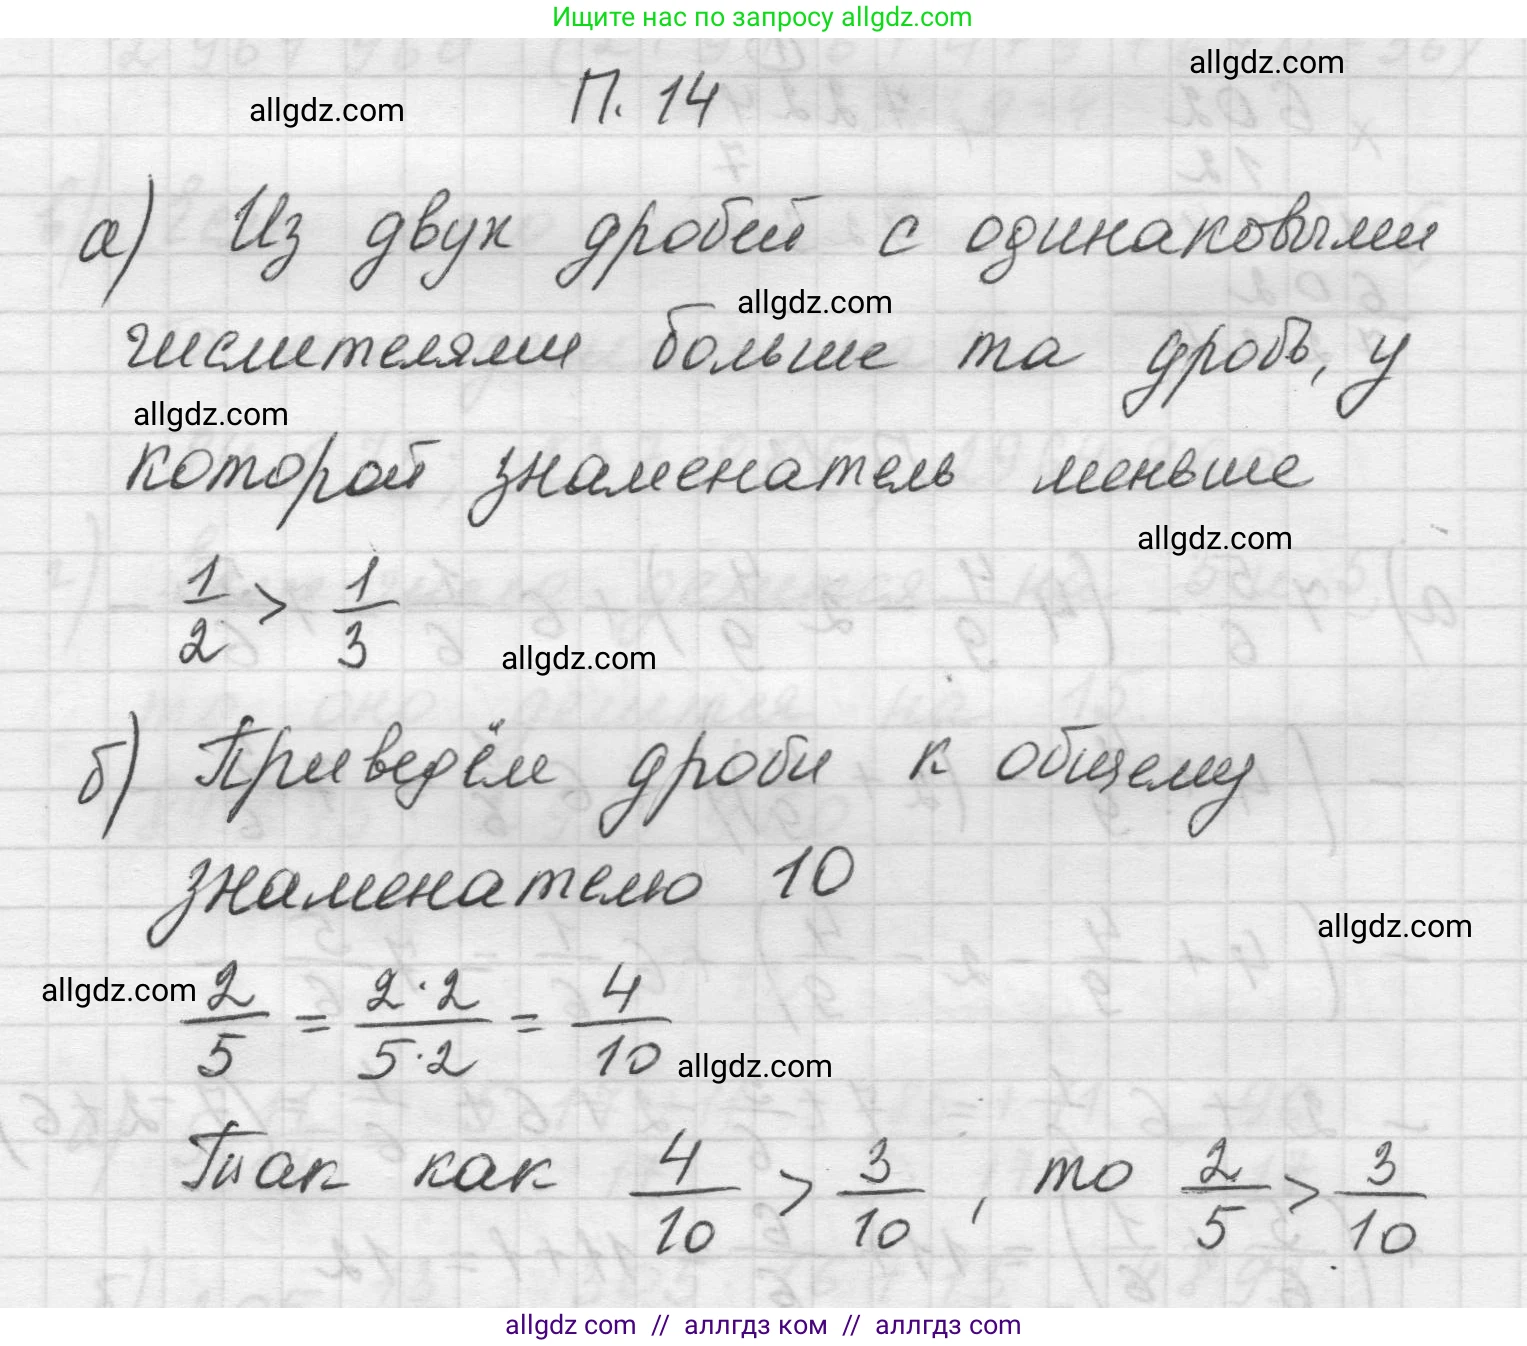 Ищите нас по запросу allgdz.com
allgdz.com
П. 14
allgdz.com
а) Из двух дробей с одинаковыми
allgdz.com
числителями больше та дробь, у
allgdz.com
которой знаменатель меньше
allgdz.com
1/2 > 1/3
allgdz.com
б) Приведём дроби к общему
знаменателю 10
allgdz.com
allgdz.com
2/5 = 2·2/5·2 = 4/10
allgdz.com
Так как 4/10 > 3/10, то 2/5 > 3/10
allgdz com // аллгдз ком // аллгдз com